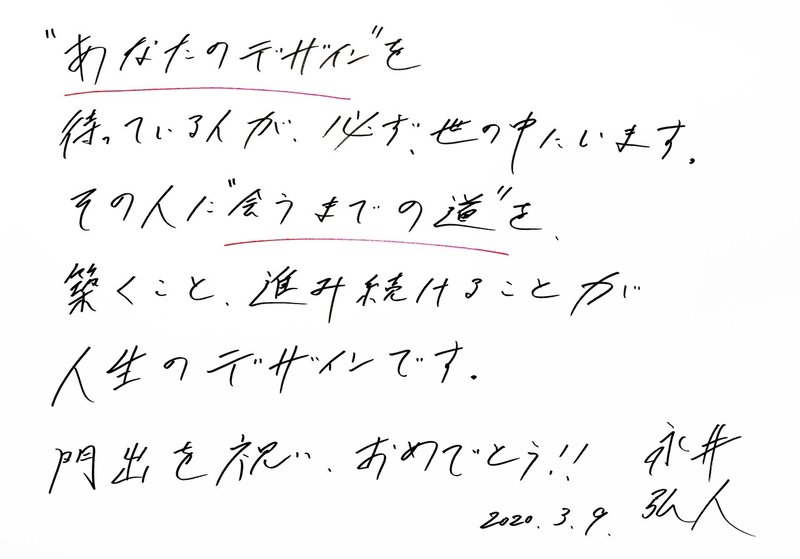 "あなたのデザイン"を
待っている人が、必ず、世の中にいます。
その人に"会うまでの道"を、
築くこと、進み続けることが
人生のデザインです。
門出を祝い、おめでとう!!
永井
弘人
2020.3.9.